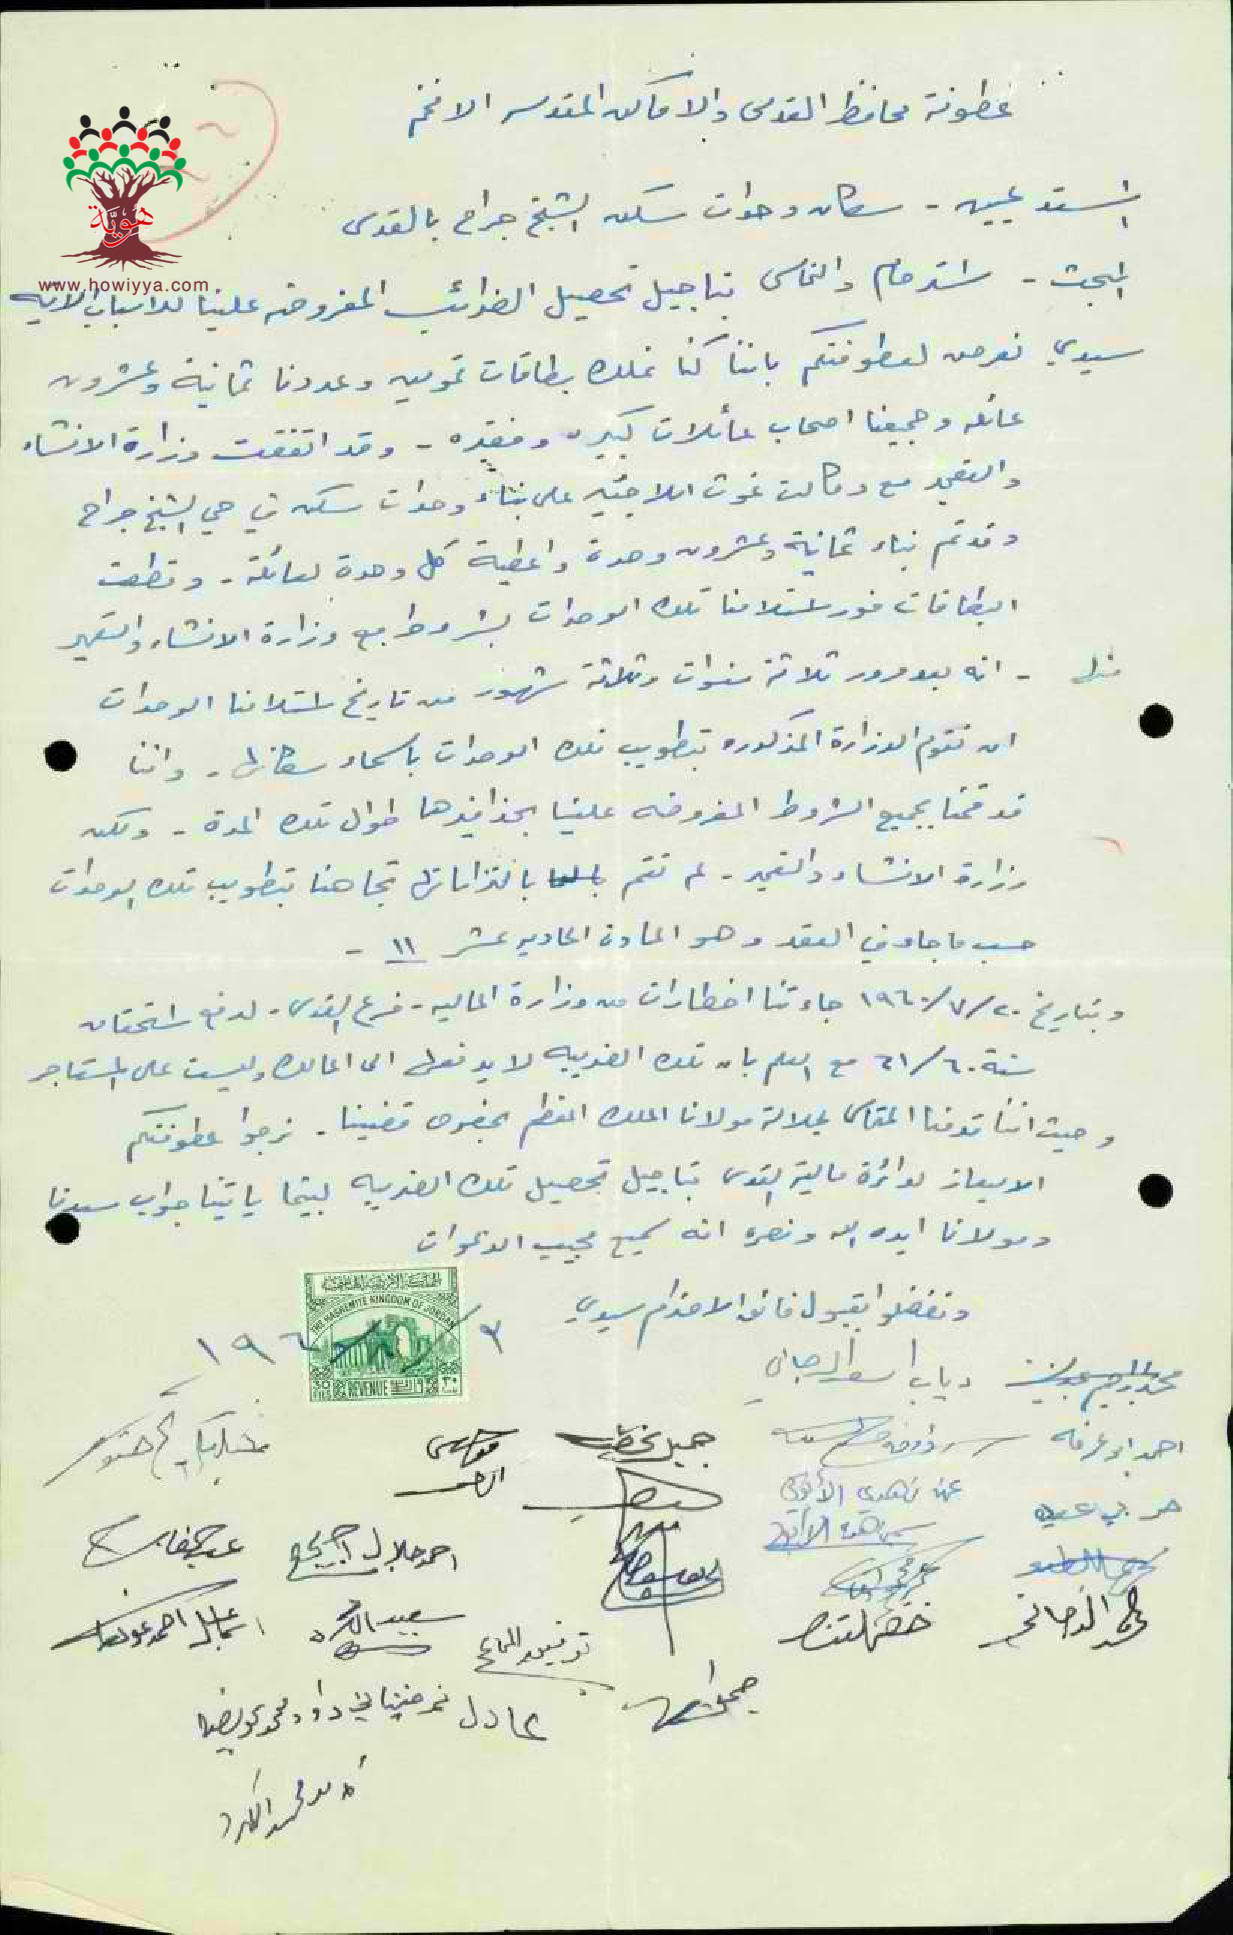 عطوفة محافظ القدس والاماكن المقدسه الافخم
هوية
www.howiyya.com
المستدعيين - سكان وحدات سكن الشيخ جراح بالقدس
المبحث - استرحام والتماس بتاجيل تحصيل الضرائب المفروضه علينا للاسباب الاتيه
سيدي نعرض لعطوفتكم باننا كنا نملك بطاقات تموين وعددنا ثمانية وعشرون
عائله وجميعنا اصحاب عائلات كبيره وفقيره - وقد اتفقت وزارة الانشاء
والتعمير مع وكالت غوث اللاجئين على بناء وحدات سكن في حي الشيخ جراح
وقد تم بناء ثمانية وعشرون وحدة واعطية كل وحدة لعائلة - وقطعت
البطاقات فور استلامنا تلك الوحدات بشروط مع وزارة الانشاء والتعمير
منها - انه بعد مرور ثلاثة سنوات وثلاثة شهور من تاريخ استلامنا الوحدات
ان تقوم الوزارة المذكوره بتطويب تلك الوحدات باسماء سكانها - واننا
قد قمنا بجميع الشروط المفروضه علينا بحذافيرها طوال تلك المدة - ولكن
وزارة الانشاء والتعمير - لم تقم بالتزاماتها تجاهنا بتطويب تلك الوحدات
حسب ما جاء في العقد وهو المادة الحاديه عشر ١١ -
وبتاريخ ٢٠/٧/١٩٦٠ جاءتنا اخطارات من وزارة الماليه - فرع القدس - لدفع استحقاق
سنة ٦٠/٦١ مع العلم بان تلك الضريبه لا يدفعها الى المالك وليست على المستاجر
وحيث اننا قدمنا التماس لجلالة مولانا الملك المعظم بخصوص قضيتنا - نرجوا عطوفتكم
الايعاز لدائرة مالية القدس بتاجيل تحصيل تلك الضريبه ليتما ياتينا جواب سيدنا
ومولانا ايده الله ونصره انه سميع مجيب الدعوات
وتفضلوا بقبول فائق الاحترام سيدي
THE HASHEMITE KINGDOM OF JORDAN
REVENUE
احمد ابو عرفه
جميل
عن
حربي عيد
احمد جلال
سعيد
اسماعيل احمد
توفيق
عادل نمر
داود محمود
محمد الكرد